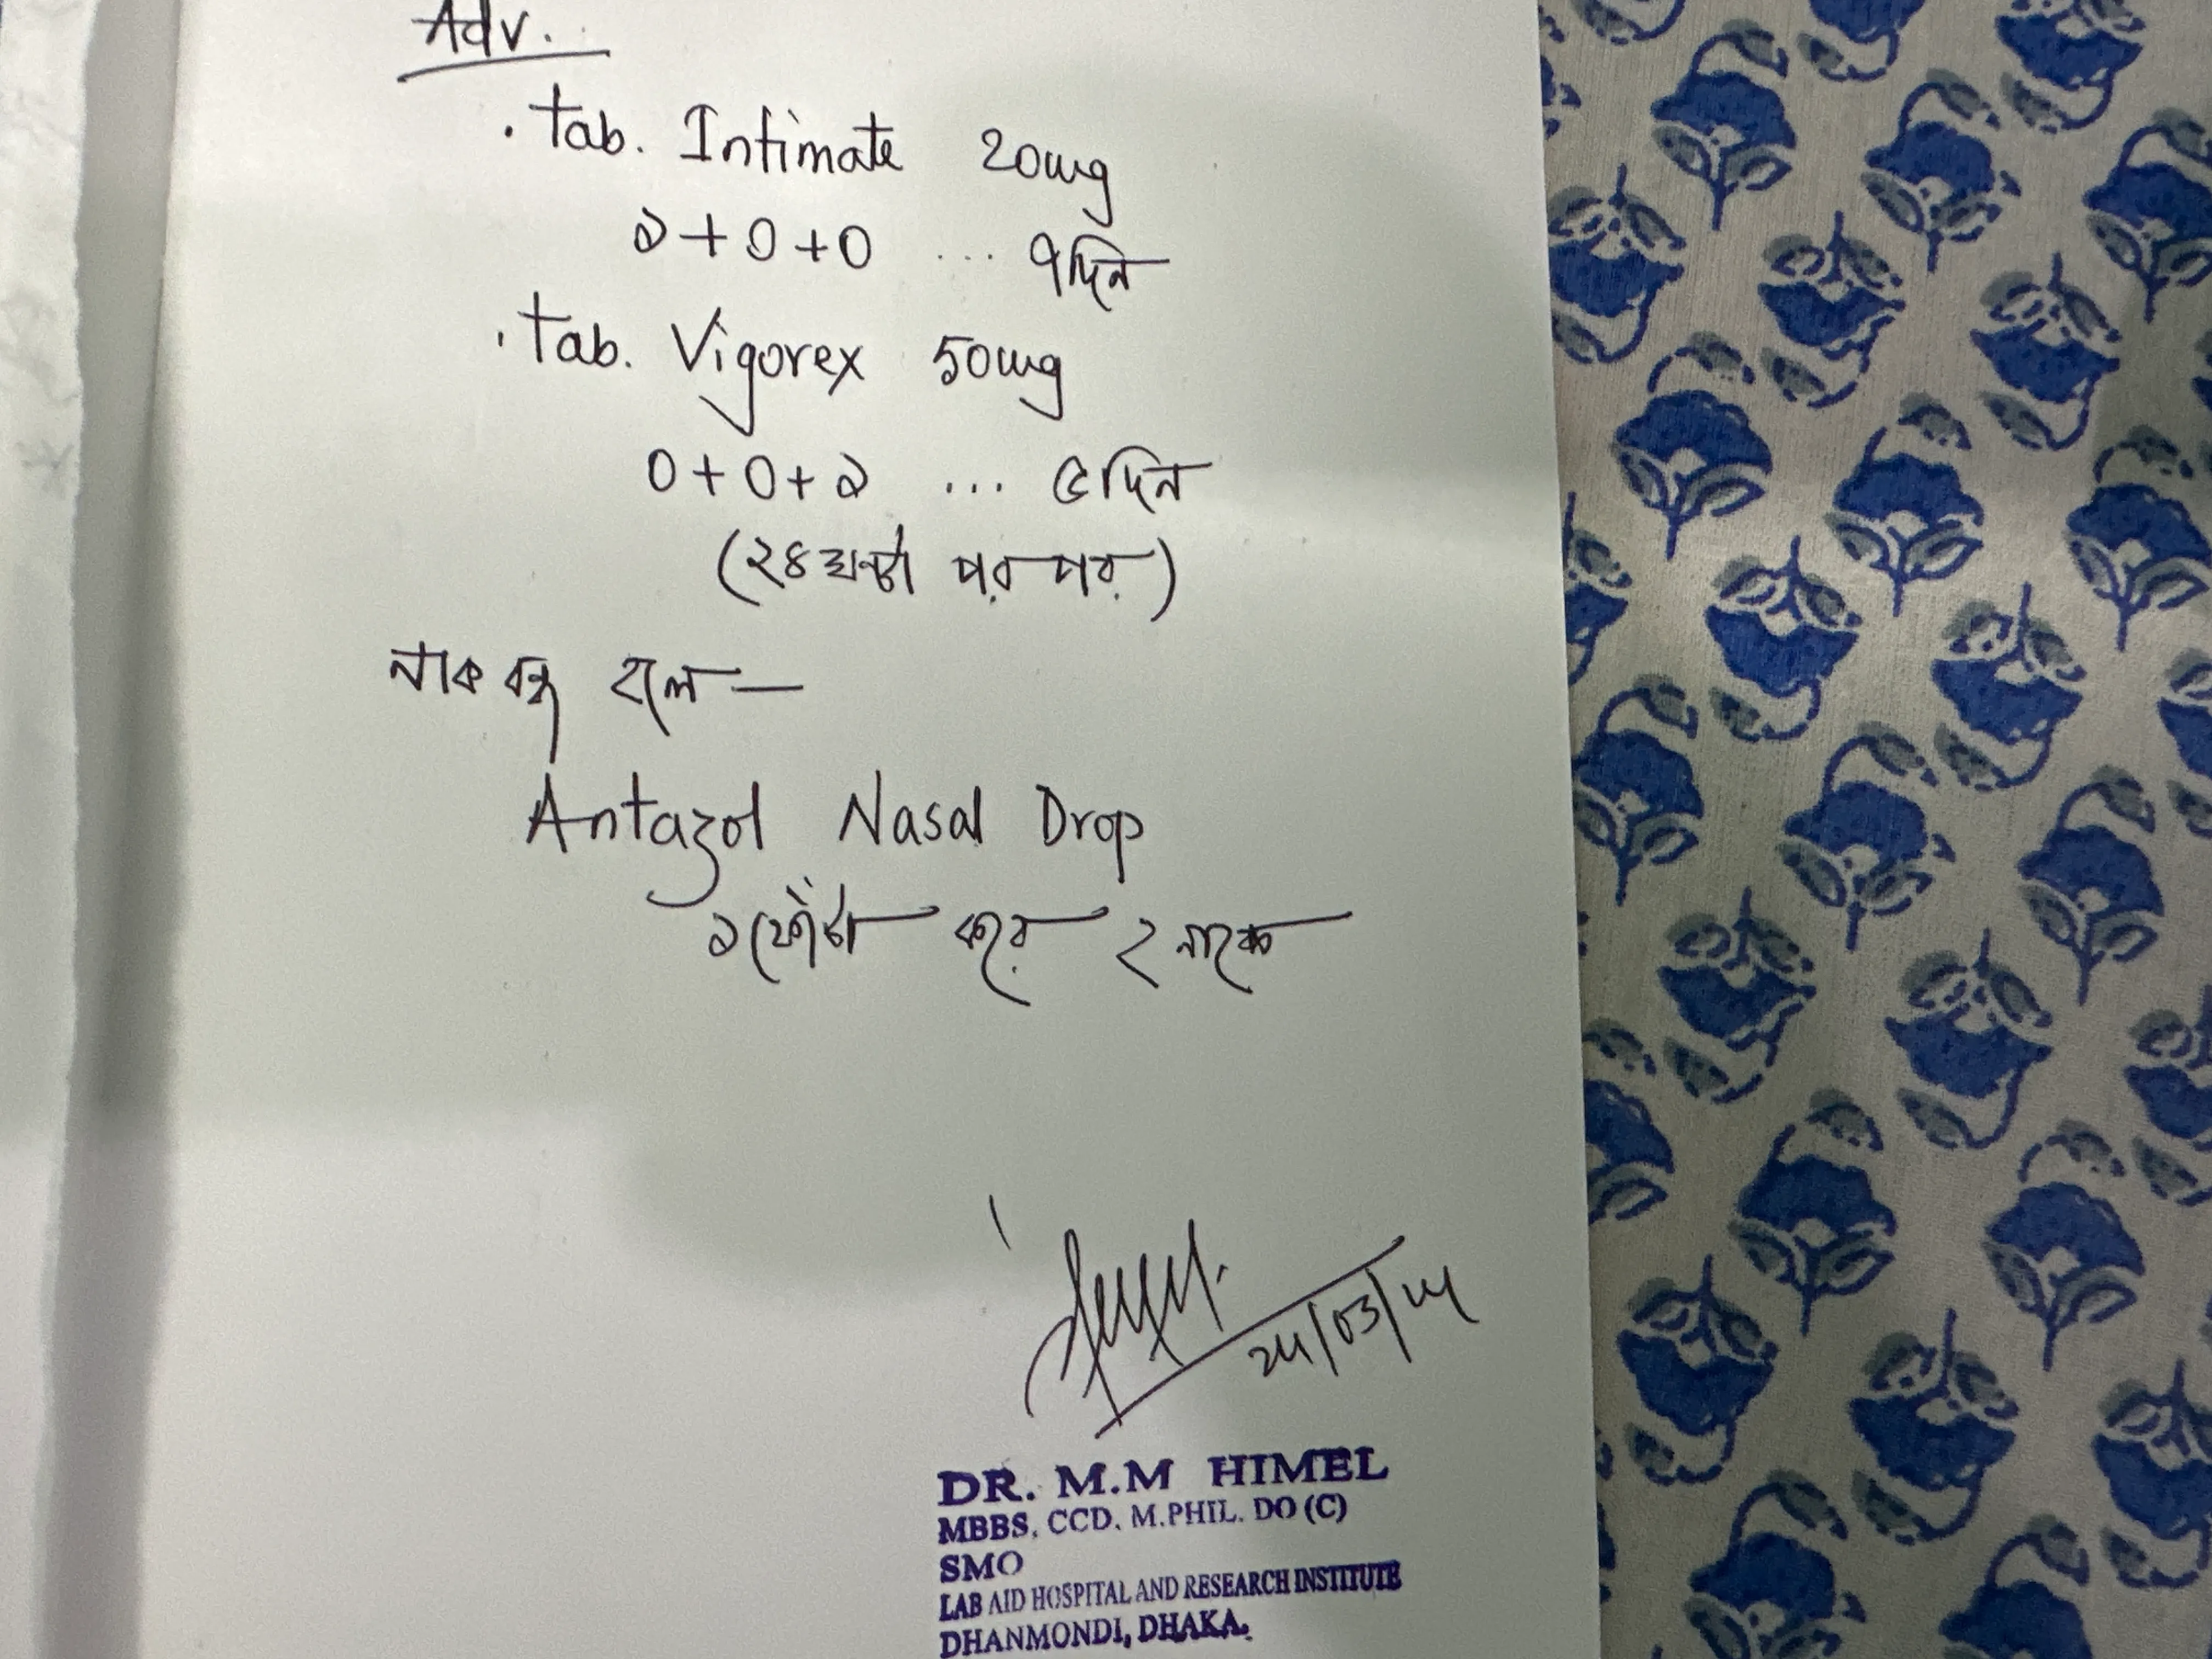 Adv.
. Tab. Intimate 20mg
১+০+০ ... ৭দিন
. Tab. Vigorex 50mg
০+০+১ ... ৫দিন
(২৪ঘন্টা পর পর)
নাক বন্ধ হলে —
Antazol Nasal Drop
১ফোঁটা করে ২ নাকে
24/03/24
DR. M.M HIMEL
MBBS, CCD. M.PHIL. DO (C)
SMO
LAB AID HOSPITAL AND RESEARCH INSTITUTE
DHANMONDI, DHAKA.